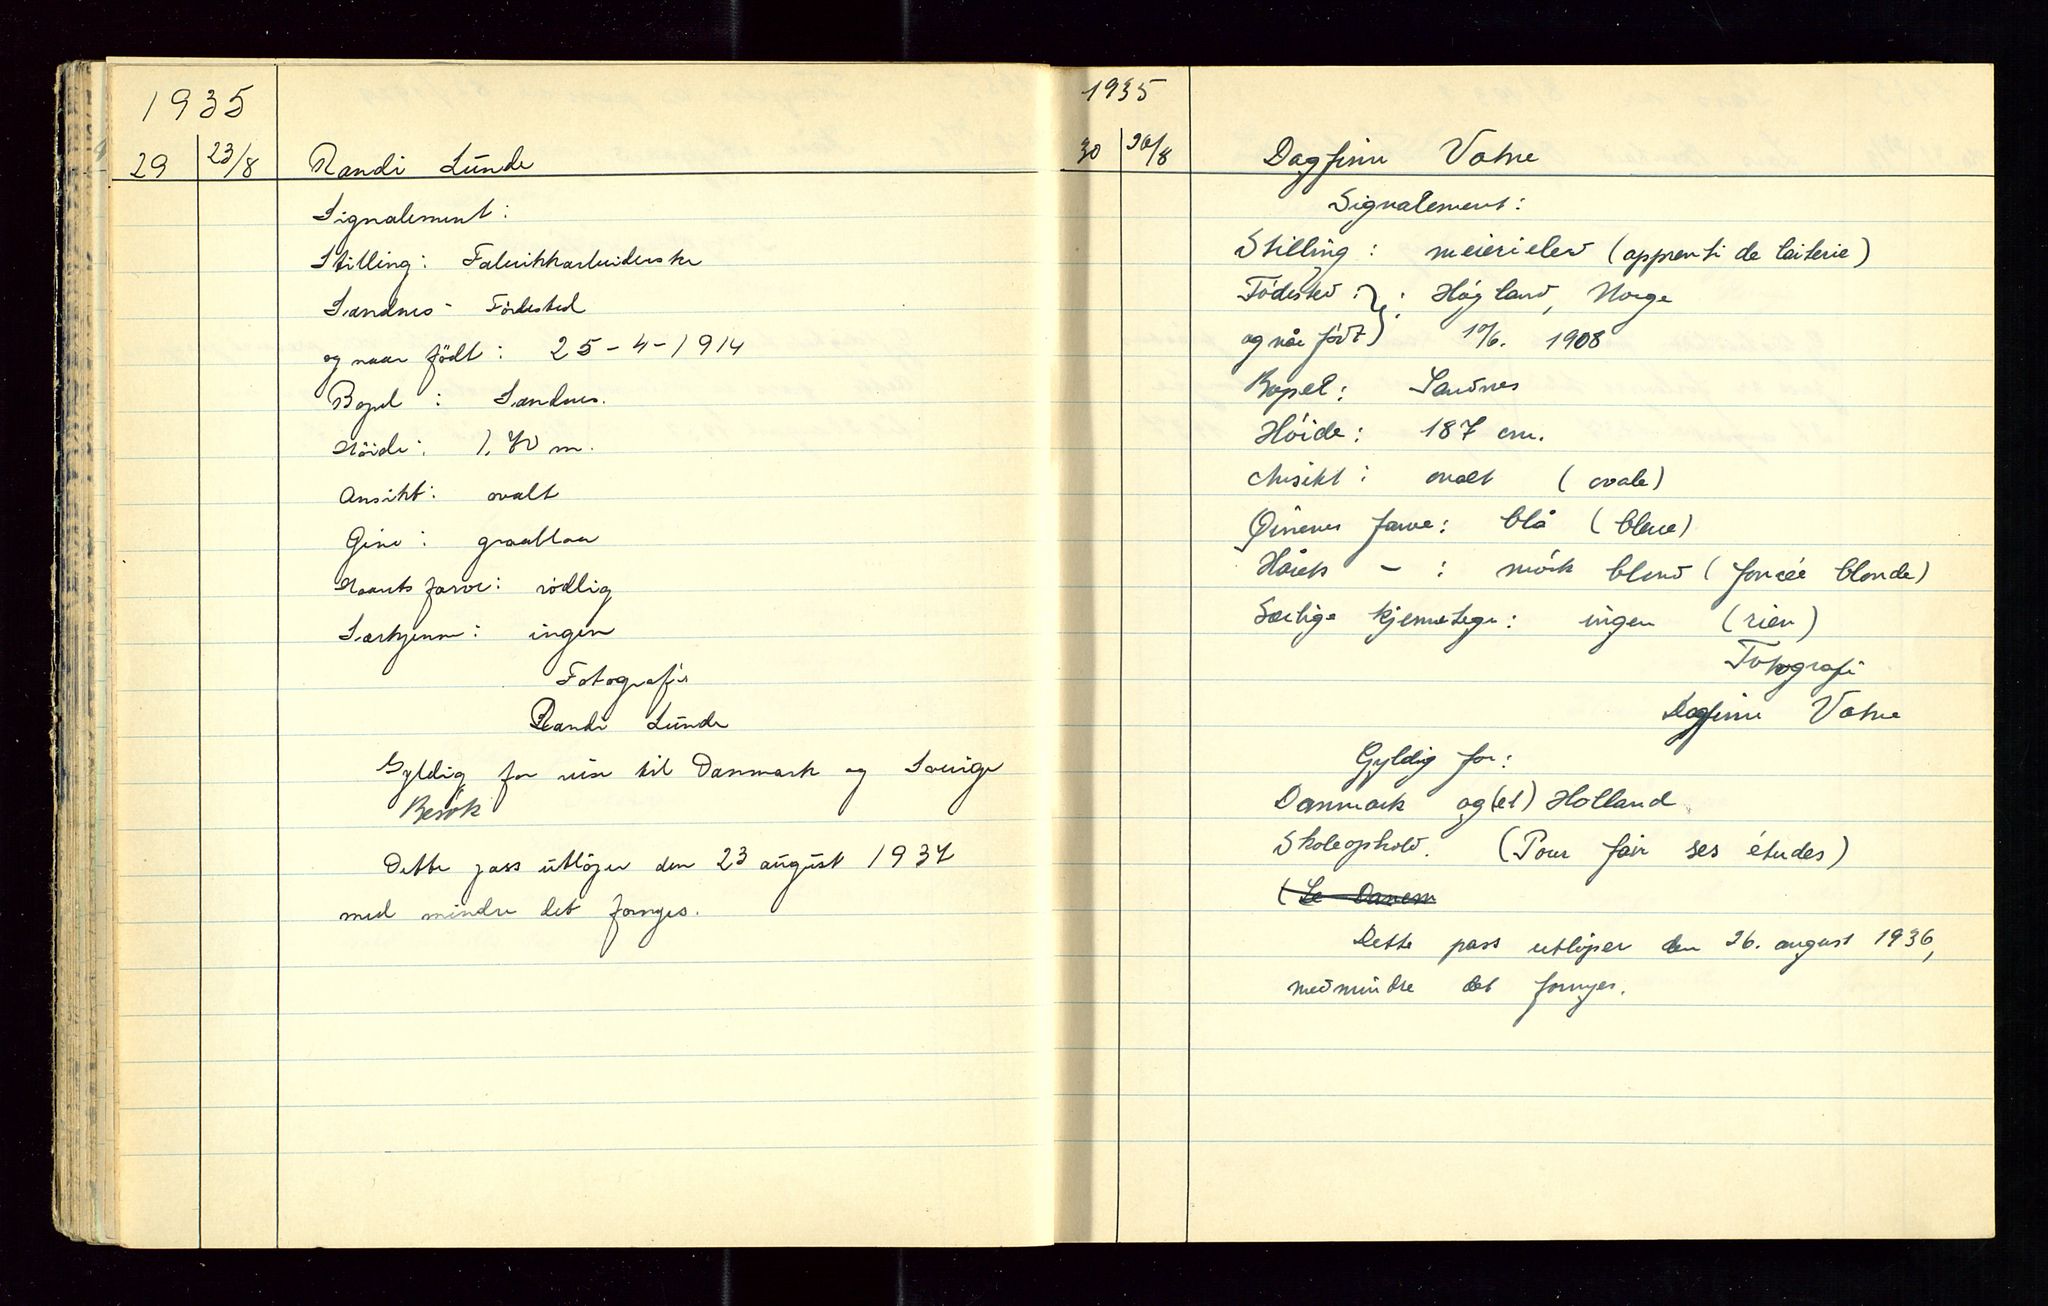 1935
29 23/8 Randi Lunde
Signalement:
Stilling: Fabrikkarbeiderske
Sandnes - Födested
og naar födt: 25-4-1914
Bopel: Sandnes.
Höide: 1,70 m.
Ansikt: ovalt
Öine: graablaa
Haarets farve: rödlig
Særkjenne: ingen
Fotografi
Randi Lunde
Gyldig for reise til Danmark og Sverige
Besök
Dette pass utlöper den 23 august 1937
med mindre det fornyes.
1935
30 26/8 Dagfinn Vatne
Signalement:
Stilling: meierielev (apprenti de laiterie)
Födested : } : Högland, Norge
og når födt } 10/6. 1908
Bopel: Sandnes
Höide: 187 cm.
Ansikt: ovalt (ovale)
Öinenes farve: blå (bleue)
Hårets - : mörk blond (foncée blonde)
Særlige kjennetegn: ingen (rien)
Fotografi
Dagfinn Vatne
Gyldig for:
Danmark og (et) Holland
Skoleophold. (Pour fair ses études)
(Le Danem
Dette pass utlöper den 26. august 1936,
medmindre det fornyes.